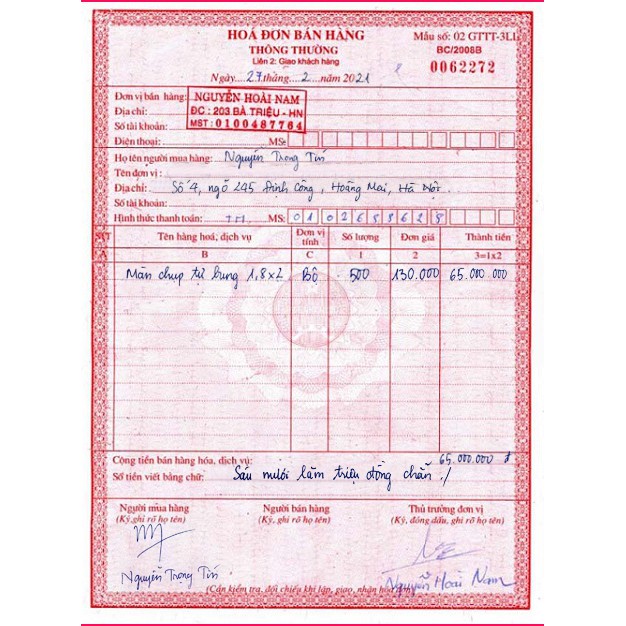 HOÁ ĐƠN BÁN HÀNG
THÔNG THƯỜNG
Liên 2: Giao khách hàng
Ngày 27 tháng 2 năm 2021
Mẫu số: 02 GTTT-3LL
BC/2008B
0062272
Đơn vị bán hàng: NGUYỄN HOÀI NAM
Địa chỉ: ĐC : 203 BÀ TRIỆU - HN
Số tài khoản: MST : 0100487764
Điện thoại: MS:
Họ tên người mua hàng: Nguyễn Trọng Tín
Tên đơn vị:
Địa chỉ: Số 4, ngõ 245 Định Công, Hoàng Mai, Hà Nội
Số tài khoản:
Hình thức thanh toán: TM. MS:
STT Tên hàng hoá, dịch vụ Đơn vị tính Số lượng Đơn giá Thành tiền
A B C 1 2 3=1x2
Màn chụp tự bung 1,8x2 Bộ 500 130.000 65.000.000
Cộng tiền bán hàng hóa, dịch vụ: 65.000.000 đ
Số tiền viết bằng chữ: Sáu mươi lăm triệu đồng chẵn ./
Người mua hàng Người bán hàng Thủ trưởng đơn vị
(Ký, ghi rõ họ tên) (Ký, ghi rõ họ tên) (Ký, đóng dấu, ghi rõ họ tên)
Nguyễn Trọng Tín Nguyễn Hoài Nam
(Cần kiểm tra, đối chiếu khi lập, giao, nhận hóa đơn)